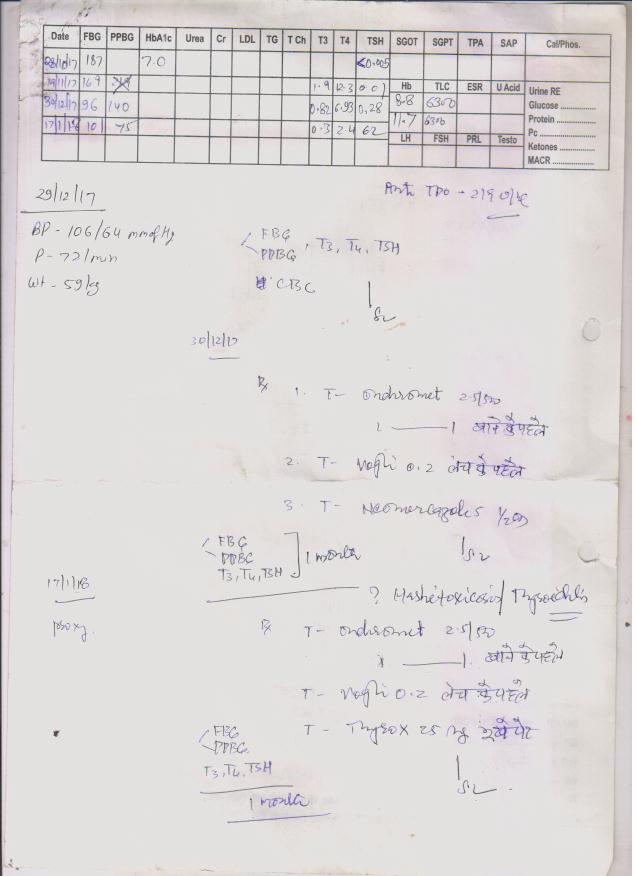 Date FBG PPBG HbA1c Urea Cr LDL TG T Ch T3 T4 TSH SGOT SGPT TPA SAP Cal/Phos.
28/10/17 187 7.0 <0.005
169 1.9 12.3 0.01 Hb TLC ESR U Acid Urine RE
30/12/17 96 140 0.82 6.93 0.28 8.8 6300 Glucose
17/1/18 101 75 0.3 2.4 62 11.7 6300 Protein
LH FSH PRL Testo Pc
Ketones
MACR
Anti TPO - 219
29/12/17
BP - 106/64 mmofHg
P - 72/min
Wt - 59kg
FBG
PPBG, T3, T4, TSH
CBC
30/12/17
Rx 1. T- Ondromet 2.5/500
1 —— 1 खाने के पहले
2. T- Vogli 0.2 लंच के पहले
3. T- Neomercazole 5 1/2 OD
FBG
PPBG
T3, T4, TSH
1 month
17/1/18
proxy.
? Hashitoxicosis/ Thyroiditis
Rx T- Ondromet 2.5/500
1 —— 1. खाने के पहले
T- Vogli 0.2 लंच के पहले
T- Thyrox 25 mg भूखे पेट
FBG
PPBG
T3, T4, TSH
1 month